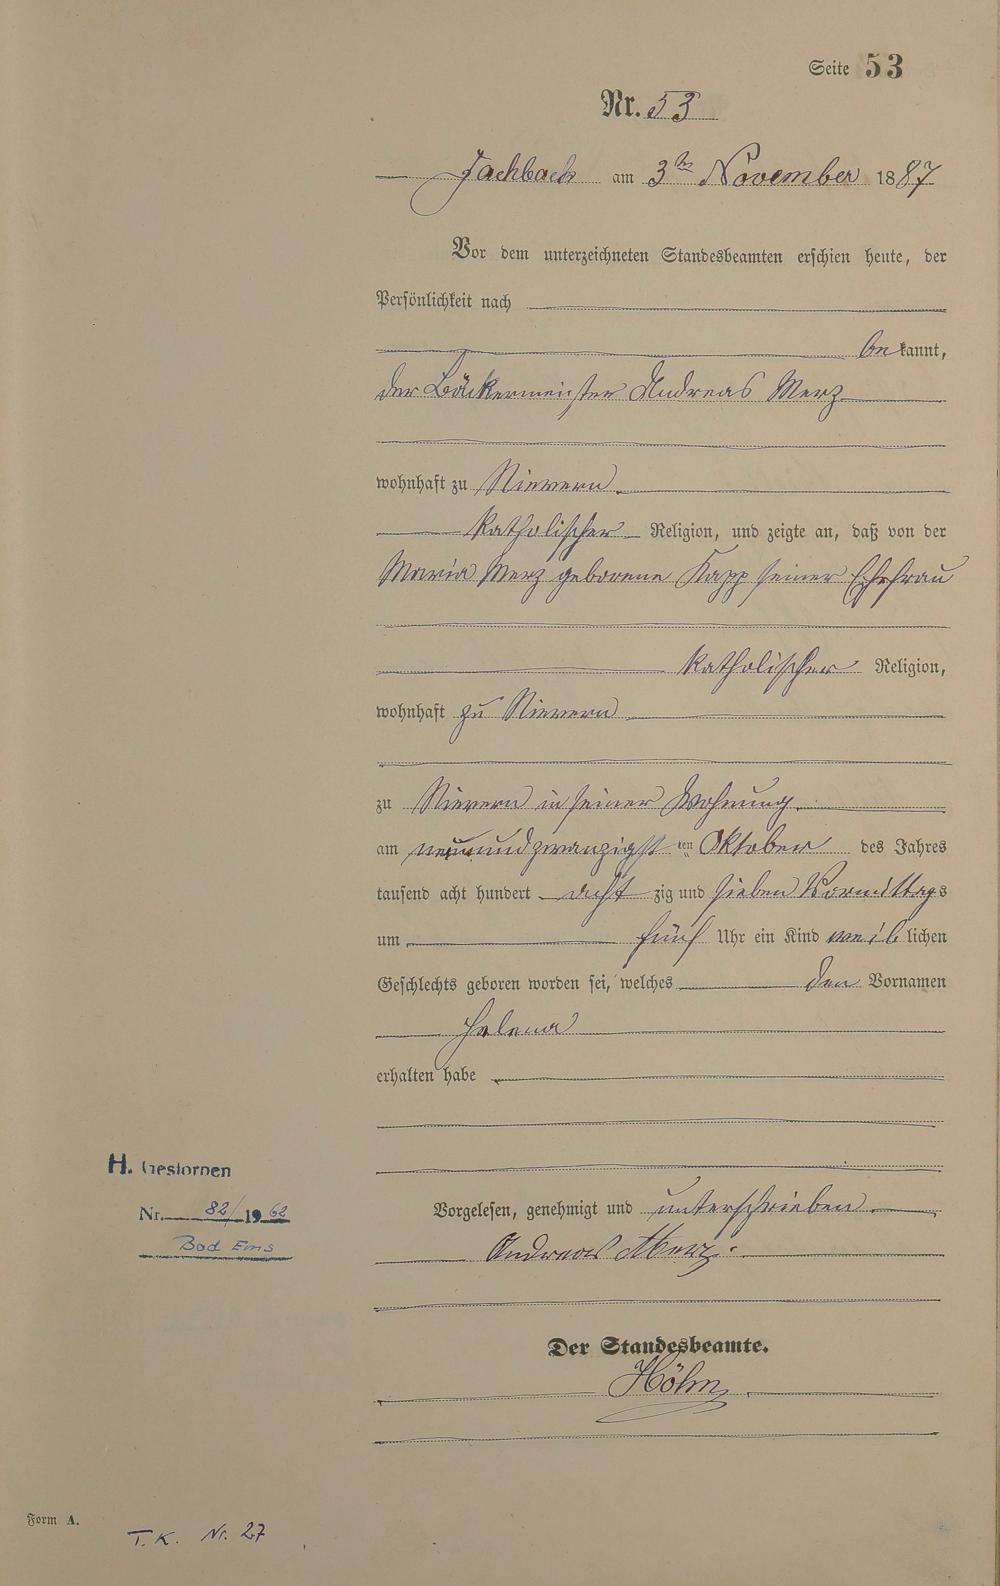 Seite 53
Nr. 53
Fachbach am 3ten November 1887
Vor dem unterzeichneten Standesbeamten erschien heute, der
Persönlichkeit nach
bekannt,
der Bäckermeister Andreas Merz
wohnhaft zu Nievern
katholischer Religion, und zeigte an, daß von der
Maria Merz geborene Kapp seiner Ehefrau
katholischer Religion,
wohnhaft zu Nievern
zu Nievern in seiner Wohnung
am neunundzwanzigsten Oktober des Jahres
tausend acht hundert achtzig und sieben Vormittags
um fünf Uhr ein Kind weiblichen
Geschlechts geboren worden sei, welches den Vornamen
Helena
erhalten habe
H. Gestorben
Nr. 82/1962
Bad Ems
Vorgelesen, genehmigt und unterschrieben
Andreas Merz.
Der Standesbeamte.
Höhn
Form A.
T. K. Nr. 27